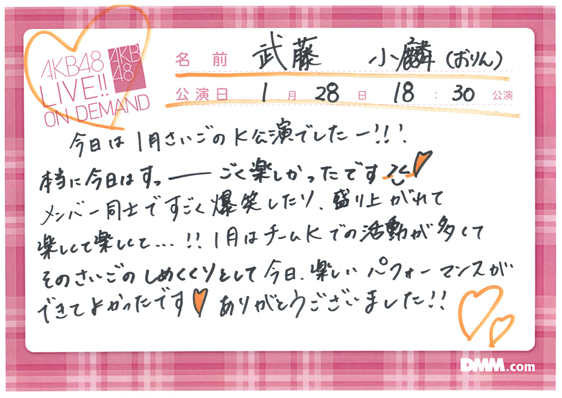 AKB48
LIVE!!
ON DEMAND
AKB
48
名前 武藤 小麟(おりん)
公演日 1月28日 18:30公演
今日は1月さいごのK公演でしたー!!!
本当に今日はすっーーごく楽しかったです
メンバー同士ですごく爆笑したり、盛り上がれて
楽しくて楽しくて…!! 1月はチームKでの活動が多くて
そのさいごのしめくくりとして今日、楽しいパフォーマンスが
できてよかったです ありがとうございました!!
DMM.com